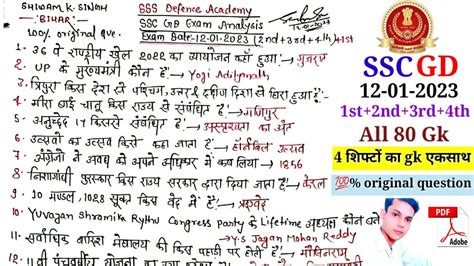 SHIVAM K. SINGH
"BIHAR"
100% original que.
SSS Defence Academy
SSC GD Exam Analysis
Exam Date-12-01-2023 (2nd+3rd+4th)+1st
1. 36 वे राष्ट्रीय खेल 2022 का आयोजन कहाँ हुआ → गुजरात
2. UP के मुख्यमंत्री कौन है → Yogi Adityanath
3. त्रिपुरा किस देश से पश्चिम, उत्तर & दक्षिण दिशा से घिरा हुआ है
4. मीरा बाई चानू किस राज्य से संबंधित है → मणिपुर
5. अनुच्छेद 17 किससे संबंधित है → अस्पृश्यता का अंत
6. उत्सवों का उत्सव किसे कहा जाता है → हॉर्नबिल उत्सव
7. अंग्रेजों ने अवध को अपने अधिकार में कब लिया → 1856
8. निशागंधी पुरस्कार किस राज्य सरकार द्वारा दिया जाता है → केरल
9. 10 मण्डल, 1028 सूक्त किस वेद में है → ऋग्वेद
10. Yuvajan Shramika Rythu Congress Party के Lifetime अध्यक्ष कौन बने
→ Y.S Jagan Mohan Reddy
11. सर्वाधिक बारिश मेघालय की किस पहाड़ी पर होती है → मौसिनराम
SSC GD
12-01-2023
1st+2nd+3rd+4th
All 80 Gk
4 शिफ्टों का gk एकसाथ
100% original question
PDF
Adobe